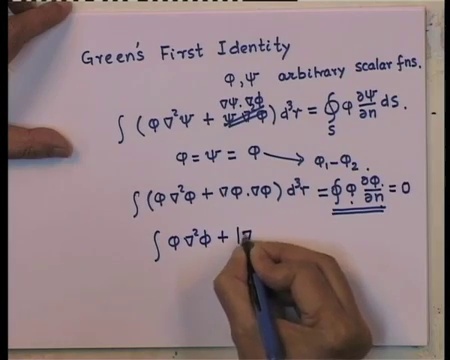 Green's First Identity
φ, ψ arbitrary scalar fns.
∇ψ.∇φ
∫ (φ∇²ψ + ψ∇²φ) d³r = ∮_S φ ∂ψ/∂n dS.
φ = ψ = φ → φ₁-φ₂.
∫ (φ∇²φ + ∇φ.∇φ) d³r = ∮ φ ∂φ/∂n = 0
∫ φ∇²φ + |∇